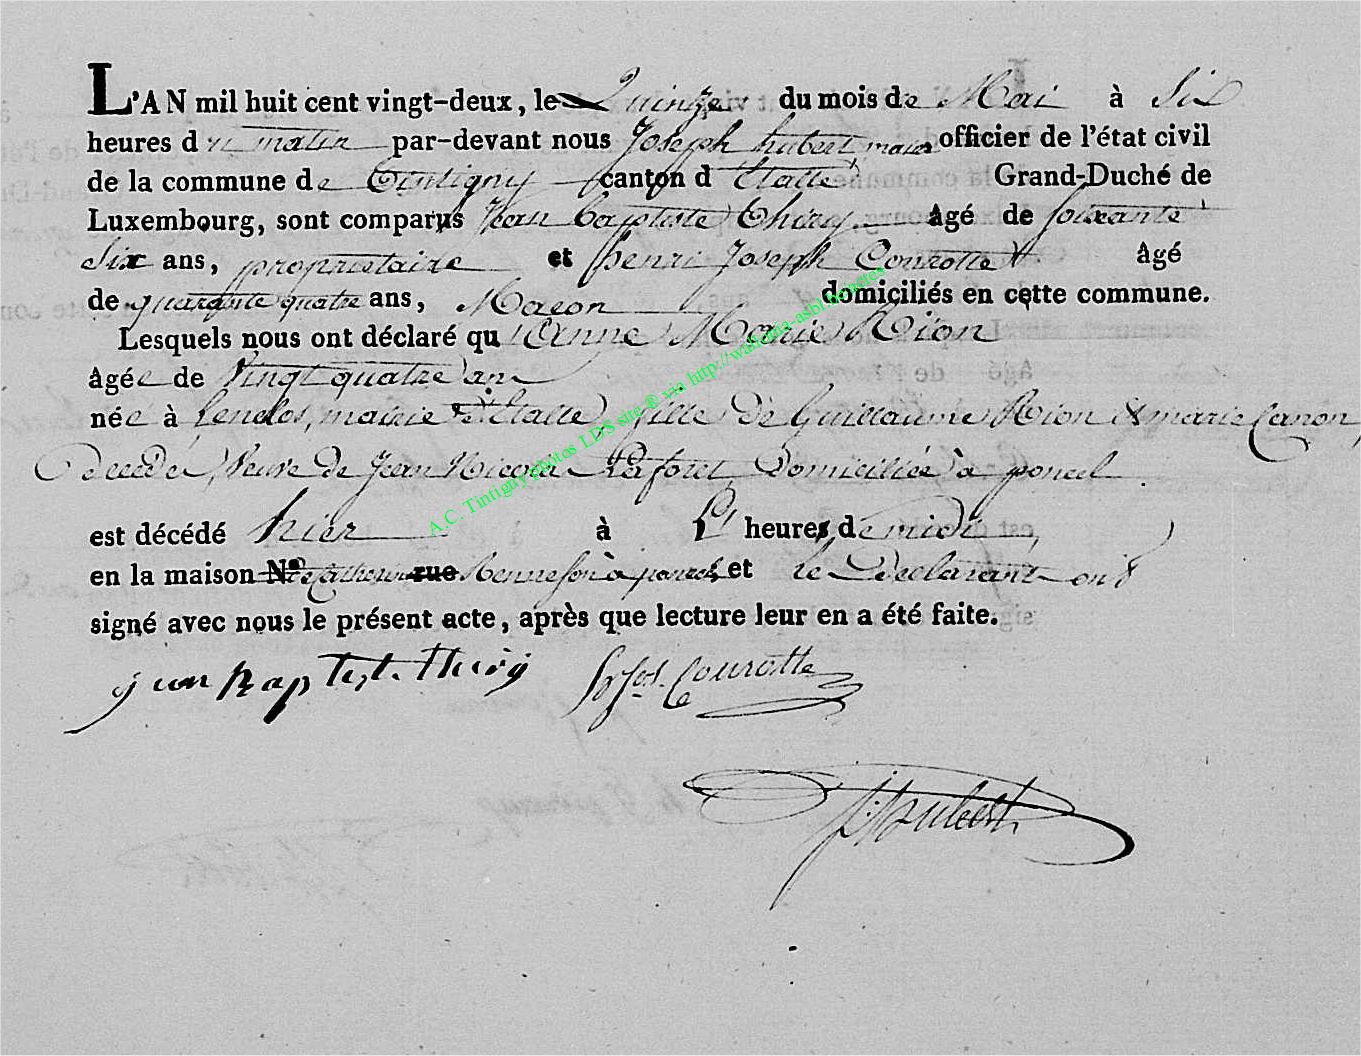 L'AN mil huit cent vingt-deux, le Quinze du mois de Mai à Six
heures du matin par-devant nous Joseph hubert maire officier de l'état civil
de la commune de Tintigny canton d'Etalle Grand-Duché de
Luxembourg, sont comparus Jean baptiste Thiry âgé de soixante
Six ans, propriétaire et henri Joseph Conrotte âgé
de quarante quatre ans, Macon domiciliés en cette commune.
Lesquels nous ont déclaré qu'Anne Marie Rion
âgée de Vingt quatre an
née à Lenclos, mairie d'Etalle, fille de Guillaume Rion & marie Canon,
decede, Veuve de Jean Nicolas Laforet Domiciliée à poncel
est décédé hier à heures de midi
en la maison N° de Catherine rue Rennesson à poncel et le Declarant ont
signé avec nous le présent acte, après que lecture leur en a été faite.
jean baptist thiry hj Conrotte
J. hubert
A.C. Tintigny photos LDS site ® via http://wallonia-asbl.be/actes